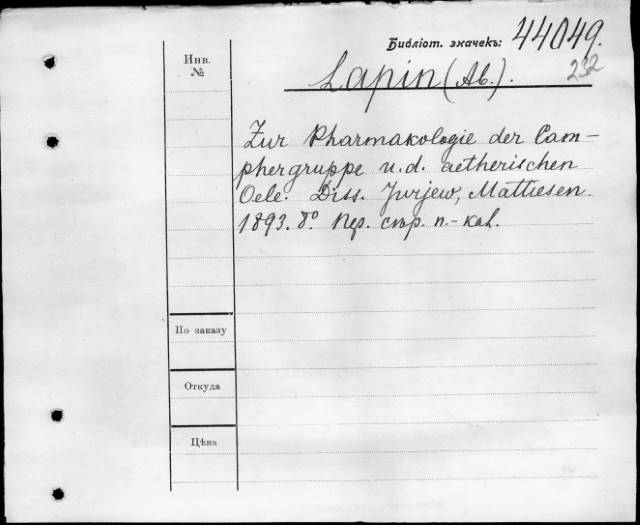 Библіот. значекъ: 44049.
232
Инв. №
Lapin (Ab.).
Zur Pharmakologie der Cam-
phergruppe u. d. aetherischen
Oele. Diss. Jurjew, Mattiesen.
1893. 8° Пер. п.-кал.
По заказу
Откуда
Цѣна